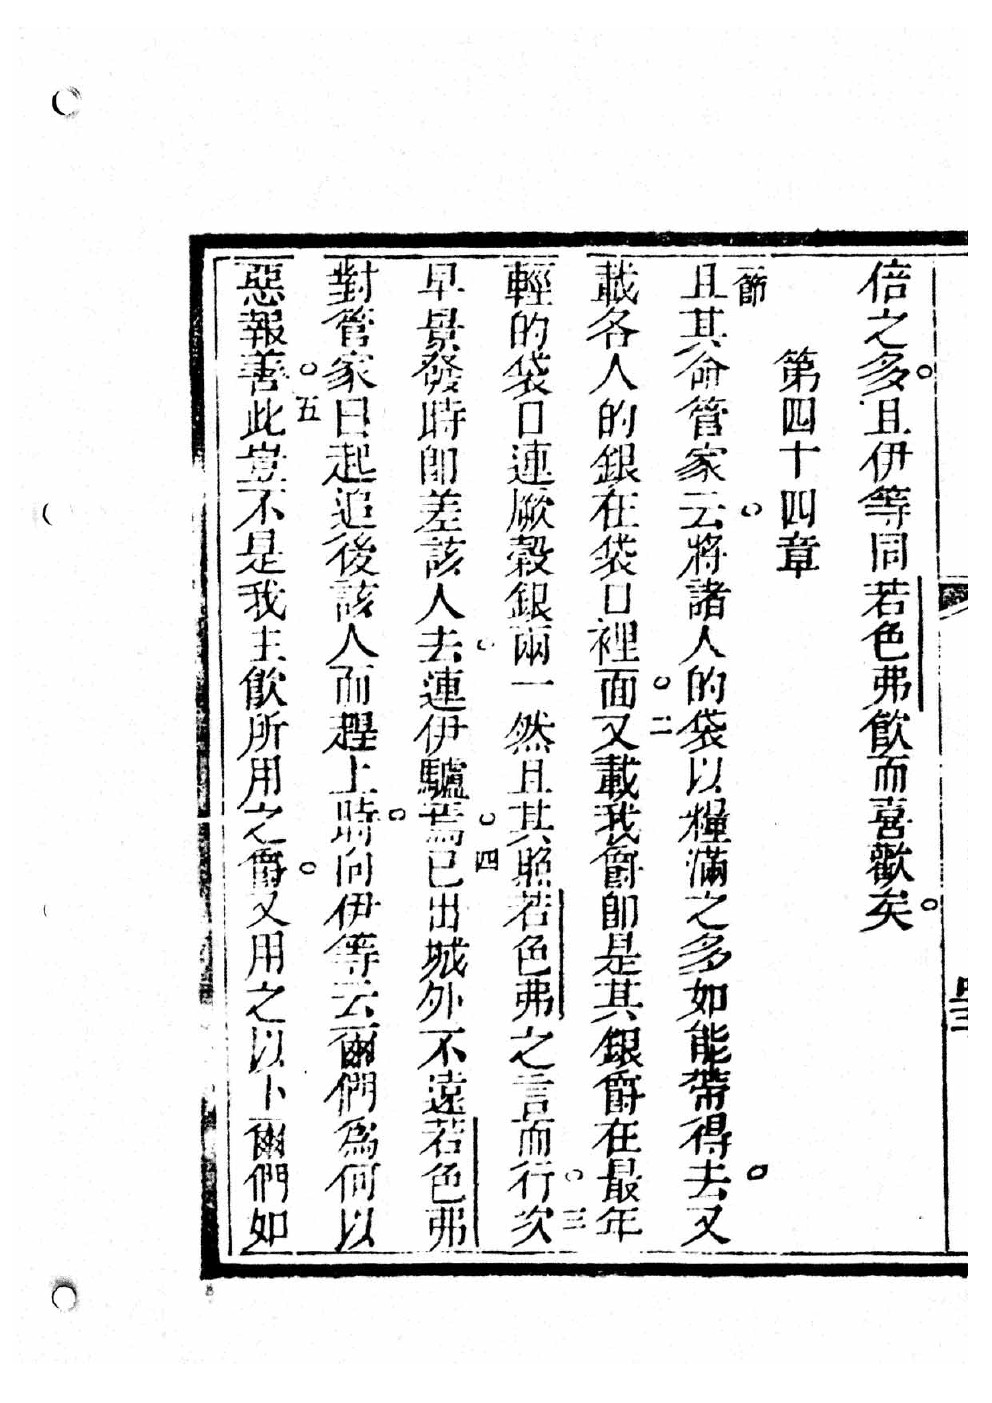 倍之多。且伊等同若色弗飲而喜歡矣。
第四十四章
一節且其命管家云。將諸人的袋以糧滿之多如能帶得去。又
載各人的銀在袋口裡面。二又載我爵即是其銀爵在最年
輕的袋口連厥穀銀兩一然。且其照若色弗之言而行。三次
早景發時即差該人去。連伊驢焉。四已出城外不遠若色弗
對管家曰起追後該人而趕上時。向伊等云爾們為何以
惡報善。五此豈不是我主飲所用之爵。又用之以卜爾們如